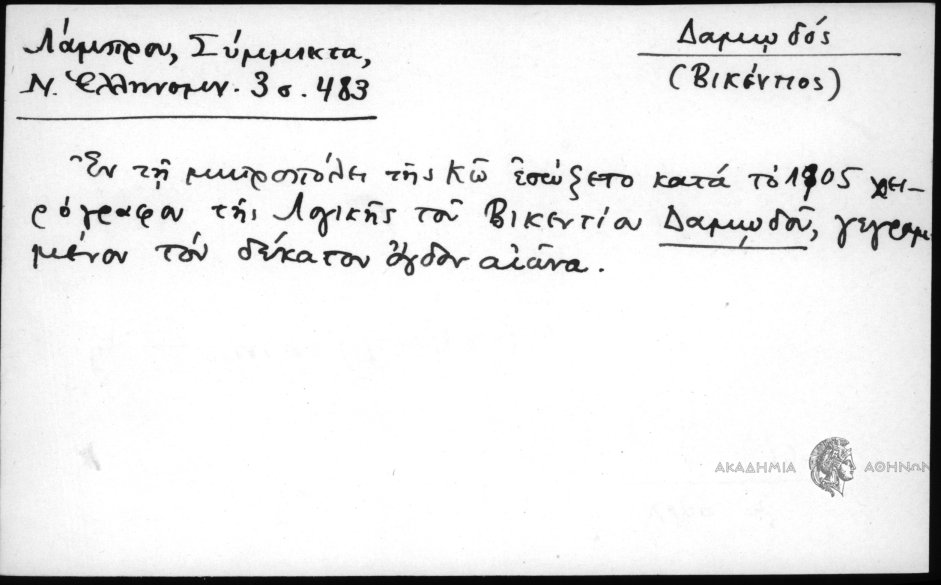 Λάμπρου, Σύμμικτα,
Ν. Ἑλληνομν. 3 σ. 483
Δαμῳδός
(Βικέντιος)
Ἐν τῇ μητροπόλει τῆς Κῶ ἐσῴζετο κατὰ τὸ 1905 χει-
ρόγραφον τῆς Λογικῆς τοῦ Βικεντίου Δαμῳδοῦ, γεγραμ-
μένον τὸν δέκατον ὄγδοον αἰῶνα.
ΑΚΑΔΗΜΙΑ ΑΘΗΝΩΝ